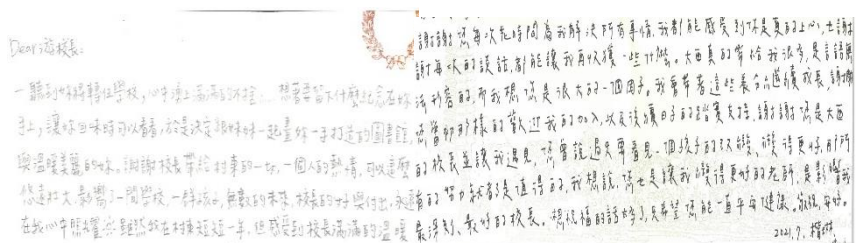 Dear 游校長:
一聽到妳將轉任學校,心中湧上滿滿的不捨...想要留下什麼紀念在妳
手上,讓妳回味時可以看看,於是決定跟妹妹一起畫妳一手打造的圖書館,
與溫暖美麗的妳。謝謝校長帶給村東的一切,一個人的熱情,可以這麼
悠遠和大,影響了一間學校,一群孩子,無數的未來,校長的好與付出,永遠
在我心中照耀 雖然我在村東短短一年,但感受到校長滿滿的溫暖
謝謝您每次花時間為我解決所有事情,我都能感受到你是真的上心,也謝
謝每次的談話,都能讓我再收穫一些什麼。大西真的帶給我很多,是言語無
法形容的,而我想您是很大的一個因子。我會帶著這些養分繼續成長,謝謝
您當初那樣的歡迎我的加入,以及後續日子的踏實支持,謝謝您是大西
的校長並讓我遇見,您曾說過只要看見一個孩子的改變、變得更好,那所
有的努力就都是值得的,我想說,您也是讓我變得更好的老師,是影響我
最深刻、最好的校長。想祝福的話太多了,只希望您能一直平安健康。敬祝 安好。
2021.7.